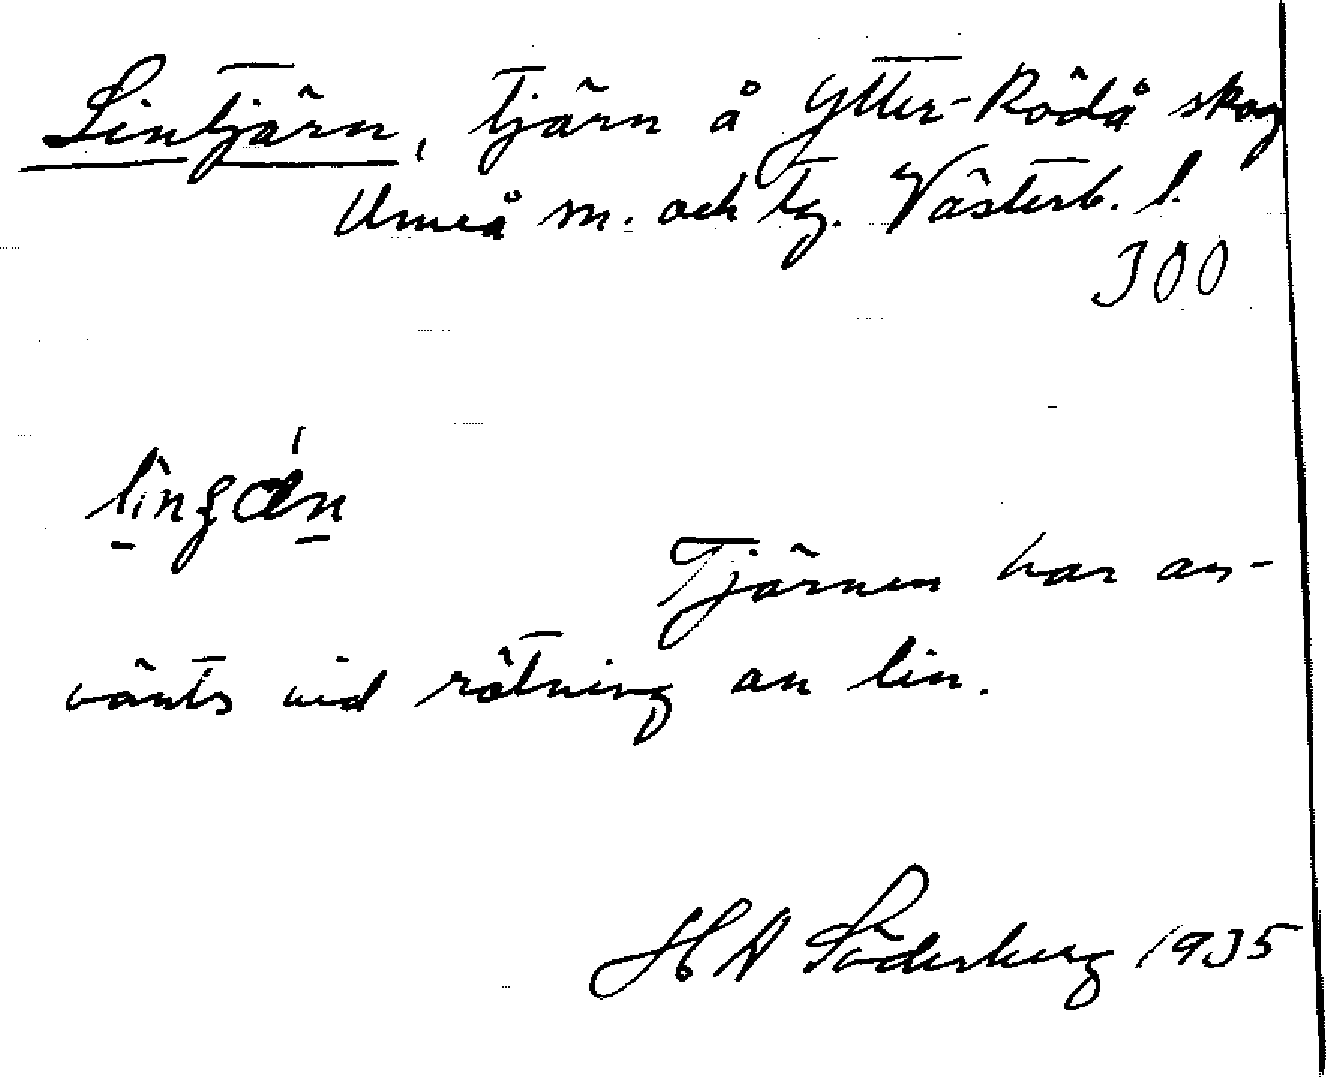 Lintjärn, tjärn å Ytter-Rödå skog
Umeå m. och tg. Västerb. l.
300
Tjärnen har an-
vänts vid rötning av lin.
H A Söderberg 1935